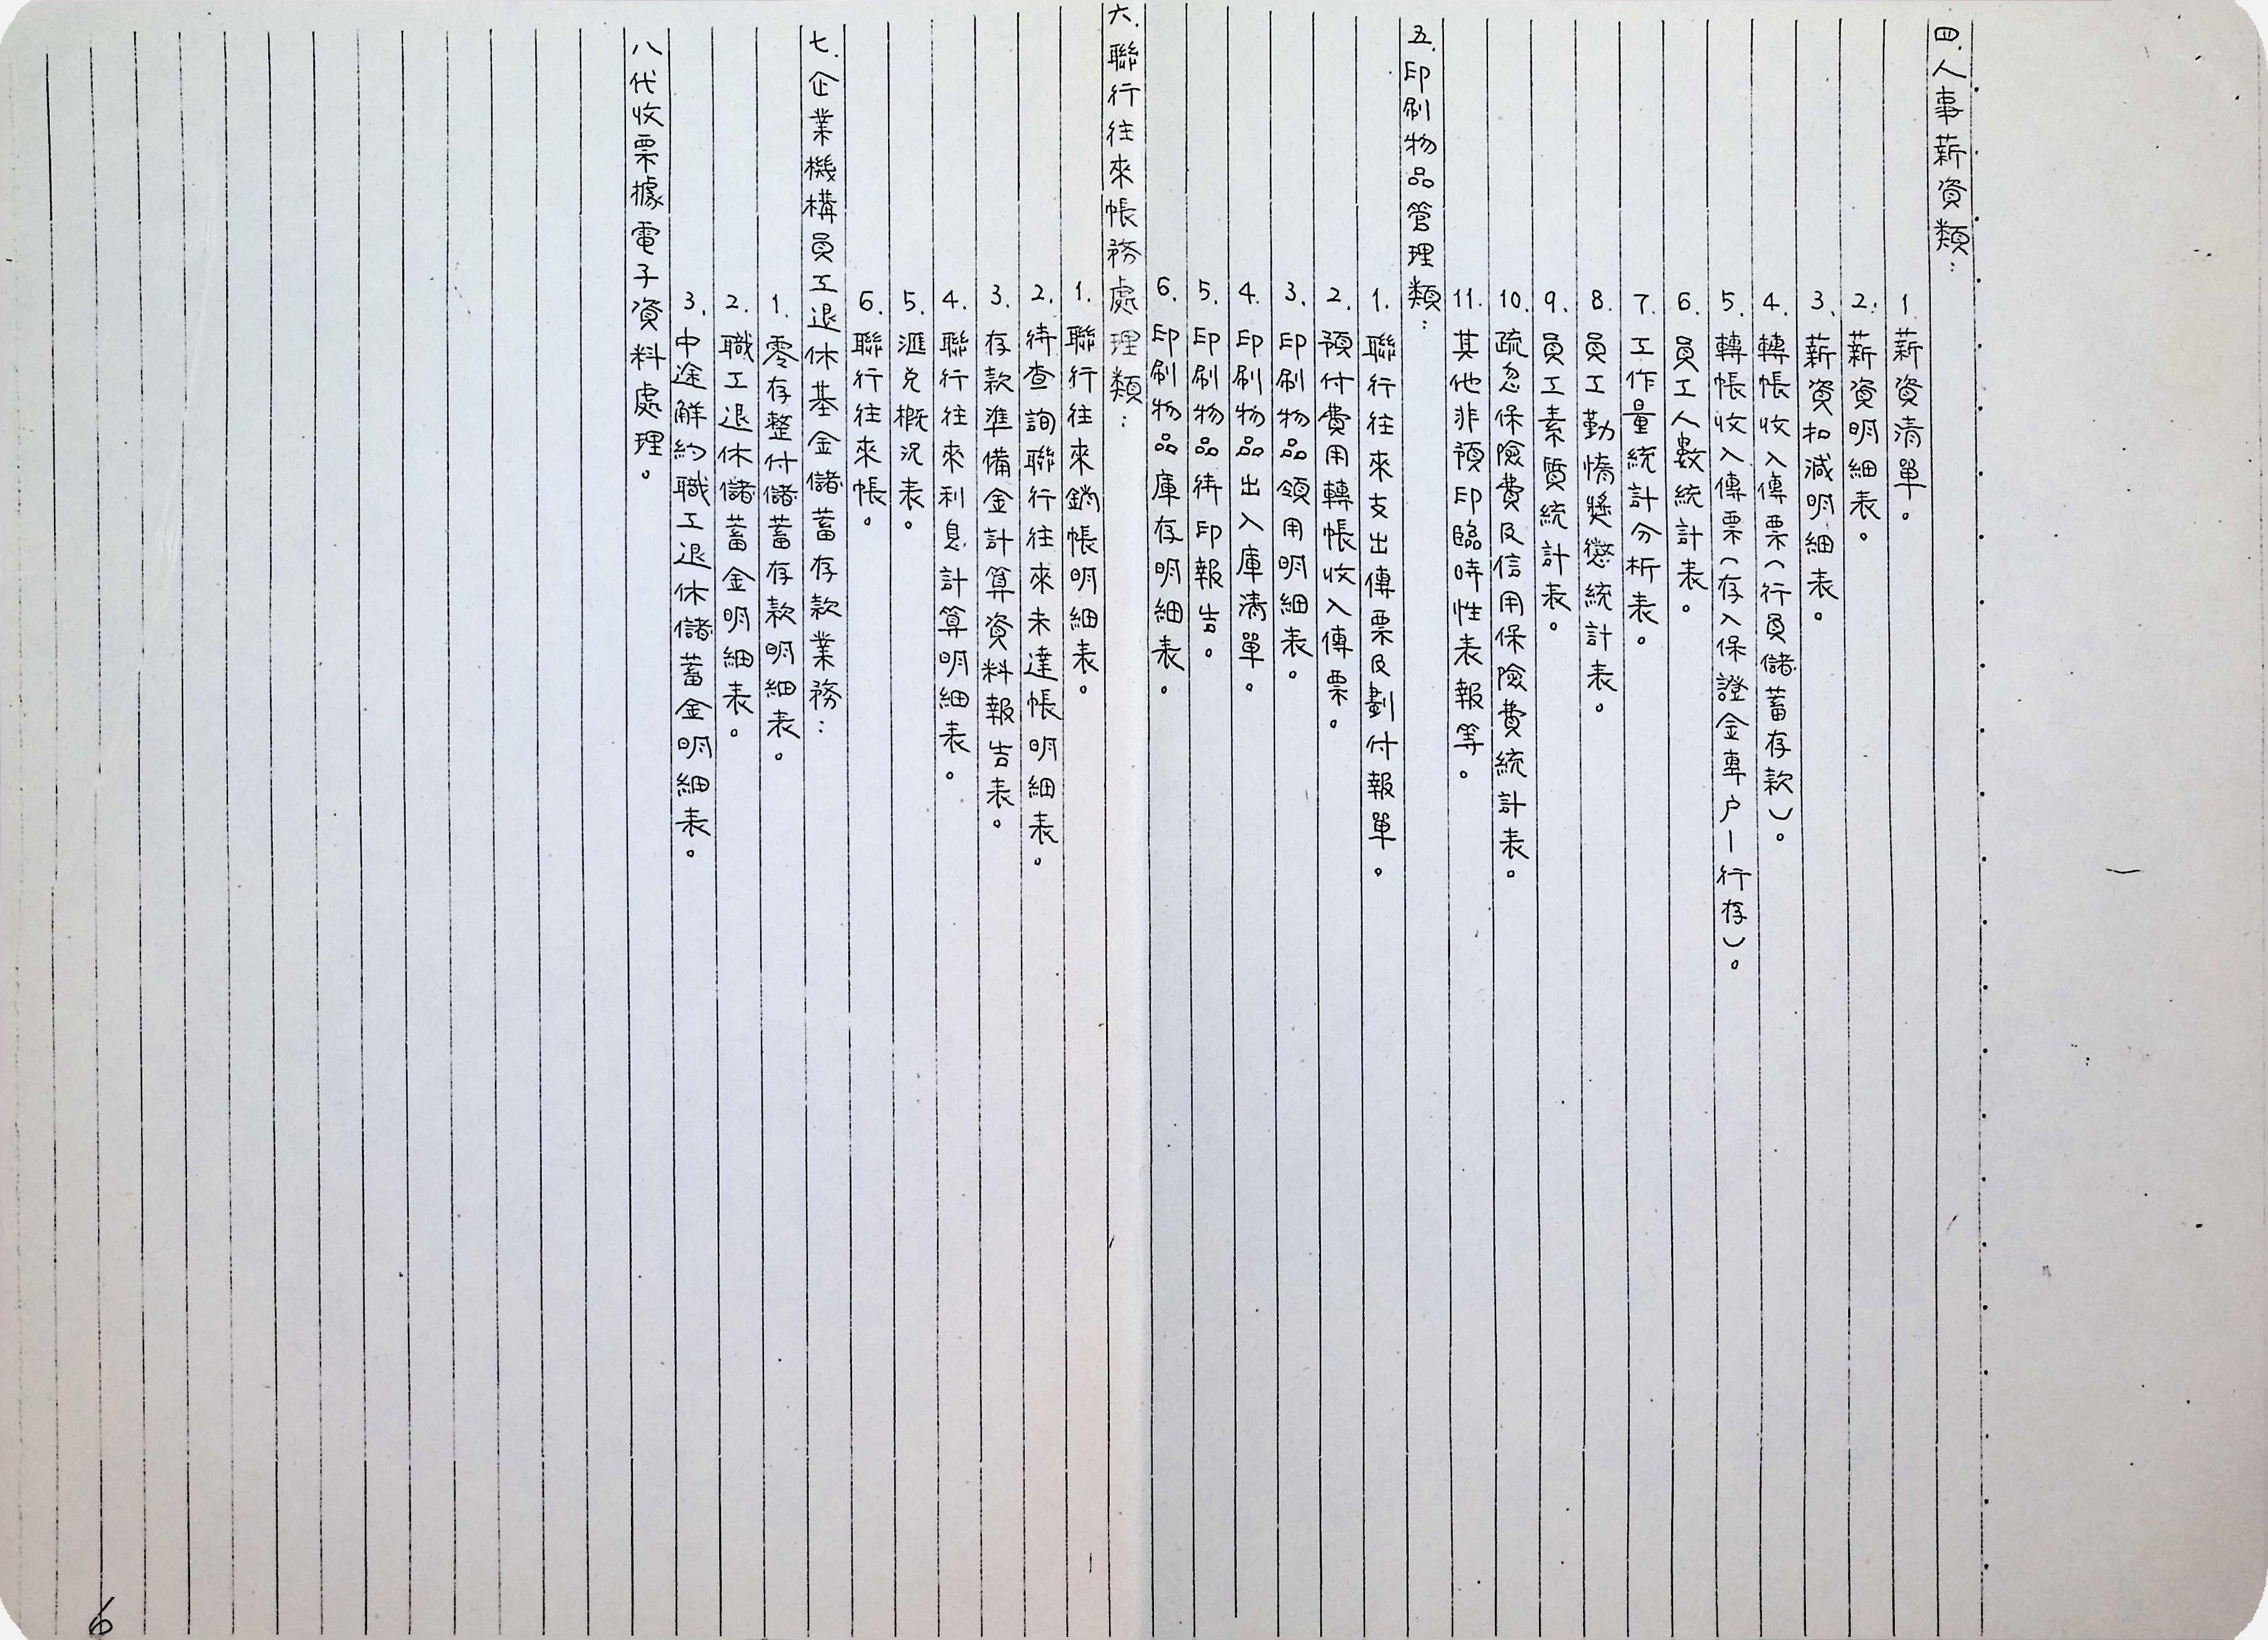 四.人事薪資類：
1.薪資清單。
2.薪資明細表。
3.薪資扣減明細表。
4.轉帳收入傳票(行員儲蓄存款)。
5.轉帳收入傳票(存入保證金專户—行存)。
6.員工人數統計表。
7.工作量統計分析表。
8.員工勤惰獎懲統計表。
9.員工素質統計表。
10.疏忽保險費及信用保險費統計表。
11.其他非預印臨時性表報等。
五.印刷物品管理類：
1.聯行往來支出傳票及劃付報單。
2.預付費用轉帳收入傳票。
3.印刷物品領用明細表。
4.印刷物品出入庫清單。
5.印刷物品待印報告。
6.印刷物品庫存明細表。
六.聯行往來帳務處理類：
1.聯行往來銷帳明細表。
2.待查詢聯行往來未達帳明細表。
3.存款準備金計算資料報告表。
4.聯行往來利息計算明細表。
5.滙兌概況表。
6.聯行往來帳。
七.企業機構員工退休基金儲蓄存款業務：
1.零存整付儲蓄存款明細表。
2.職工退休儲蓄金明細表。
3.中途解約職工退休儲蓄金明細表。
八代收票據電子資料處理。
6